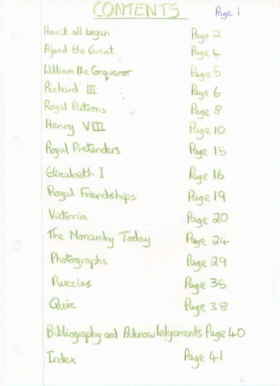 CONTENTS Page 1
How it all began Page 2
Alfred the Great Page 4
William the Conqueror Page 5
Richard III Page 6
Royal Pictures Page 8
Henry VIII Page 10
Royal Pretenders Page 15
Elizabeth I Page 16
Royal Friendships Page 19
Victoria Page 20
The Monarchy Today Page 24
Photographs Page 29
Puzzles Page 35
Quiz Page 38
Bibliography and Acknowledgements Page 40
Index Page 41